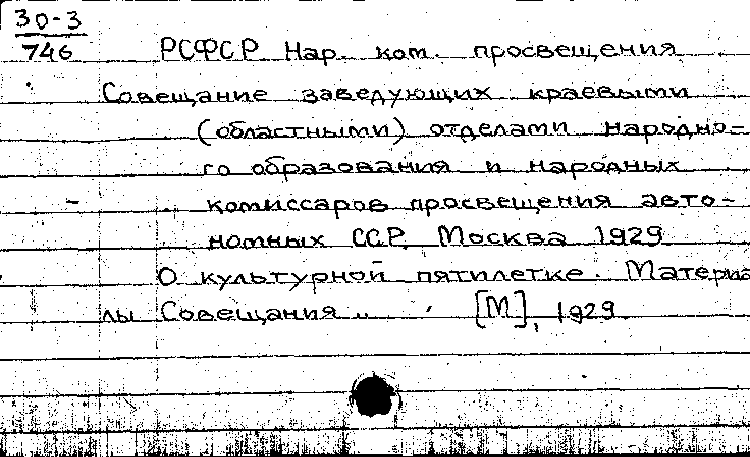 30-3
746
РСФСР Нар. ком. просвещения
Совещание заведующих краевыми
(областными) отделами народно-
го образования и народных
комиссаров просвещения авто-
номных ССР. Москва 1929
О культурной пятилетке. Материа
лы Совещания .. [М], 1929